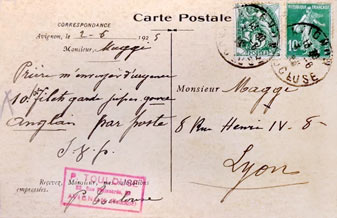 Carte Postale
CORRESPONDANCE
Avignon, le 2-6 1925
Monsieur, Maggi
Prière m'envoyer d'urgence
10 filets garde jupes genre
anglais par poste
S.V.P.
Recevez, Monsieur, mes salutations
empressées.
P. Toulouse
P. TOULOUSE
AVIGNON
Monsieur Maggi
8 Rue Henri IV - 8
Lyon
10
VAUCLUSE